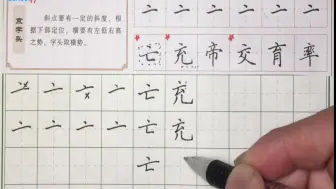 京字头
斜点要有一定的斜度，根
据下部定位，横要有左低右高
之势，字头取横势。
亠 亠 亠 亠 亠 亠
亡 充 帝 交 育 率
亠 亠 亠 亠 亡 充
亠 亠 亠 亠 亡 充
亡